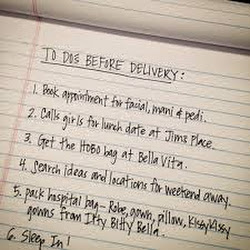 TO DOS BEFORE DELIVERY:
1. Book appointment for facial, mani & pedi.
2. Calls girls for lunch date at Jims Place.
3. Get the HOBO bag at Bella Vita.
4. Search ideas and locations for weekend away.
5. pack hospital bag - Robe, gown, pillow, KissyKissy
gowns from Itty Bitty Bella.
6. Sleep In!